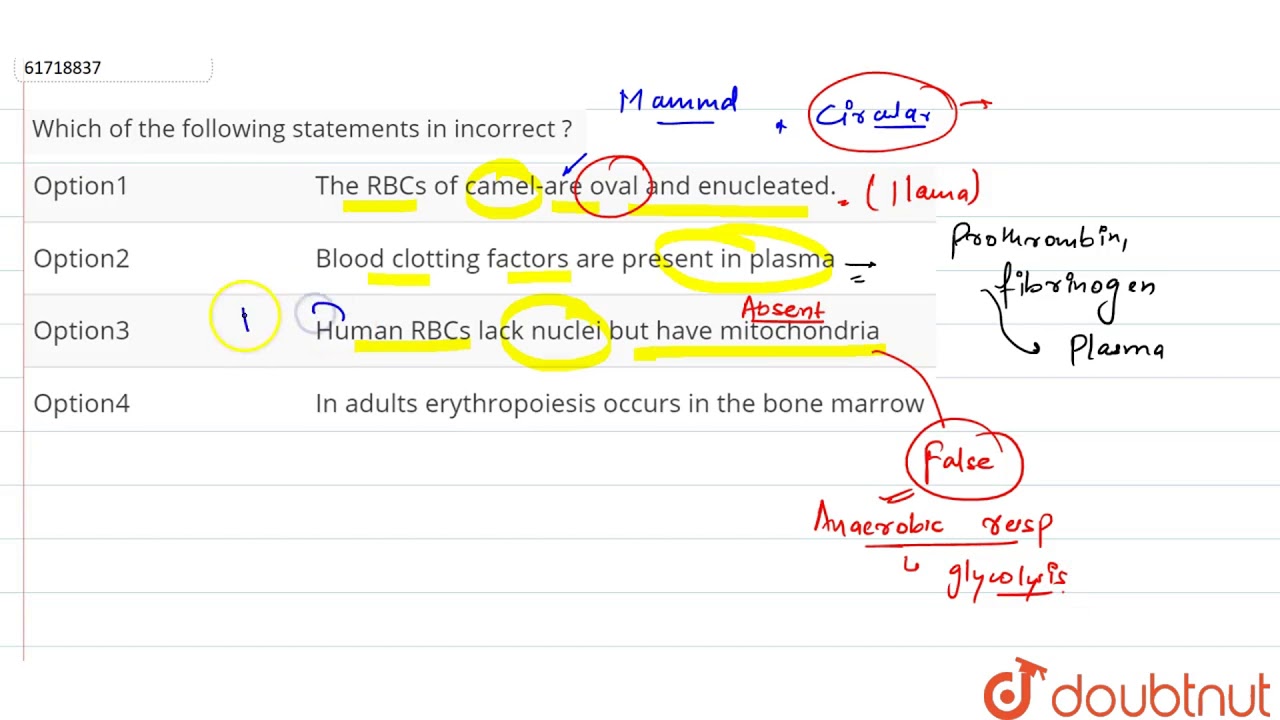 61718837
Mammal * Circular →
Which of the following statements in incorrect ?
Option1 The RBCs of camel-are oval and enucleated. (llama)
Option2 Blood clotting factors are present in plasma →
Prothrombin,
fibrinogen
Plasma
Absent
Option3 Human RBCs lack nuclei but have mitochondria
Option4 In adults erythropoiesis occurs in the bone marrow
False
Anaerobic resp
glycolysis
doubtnut